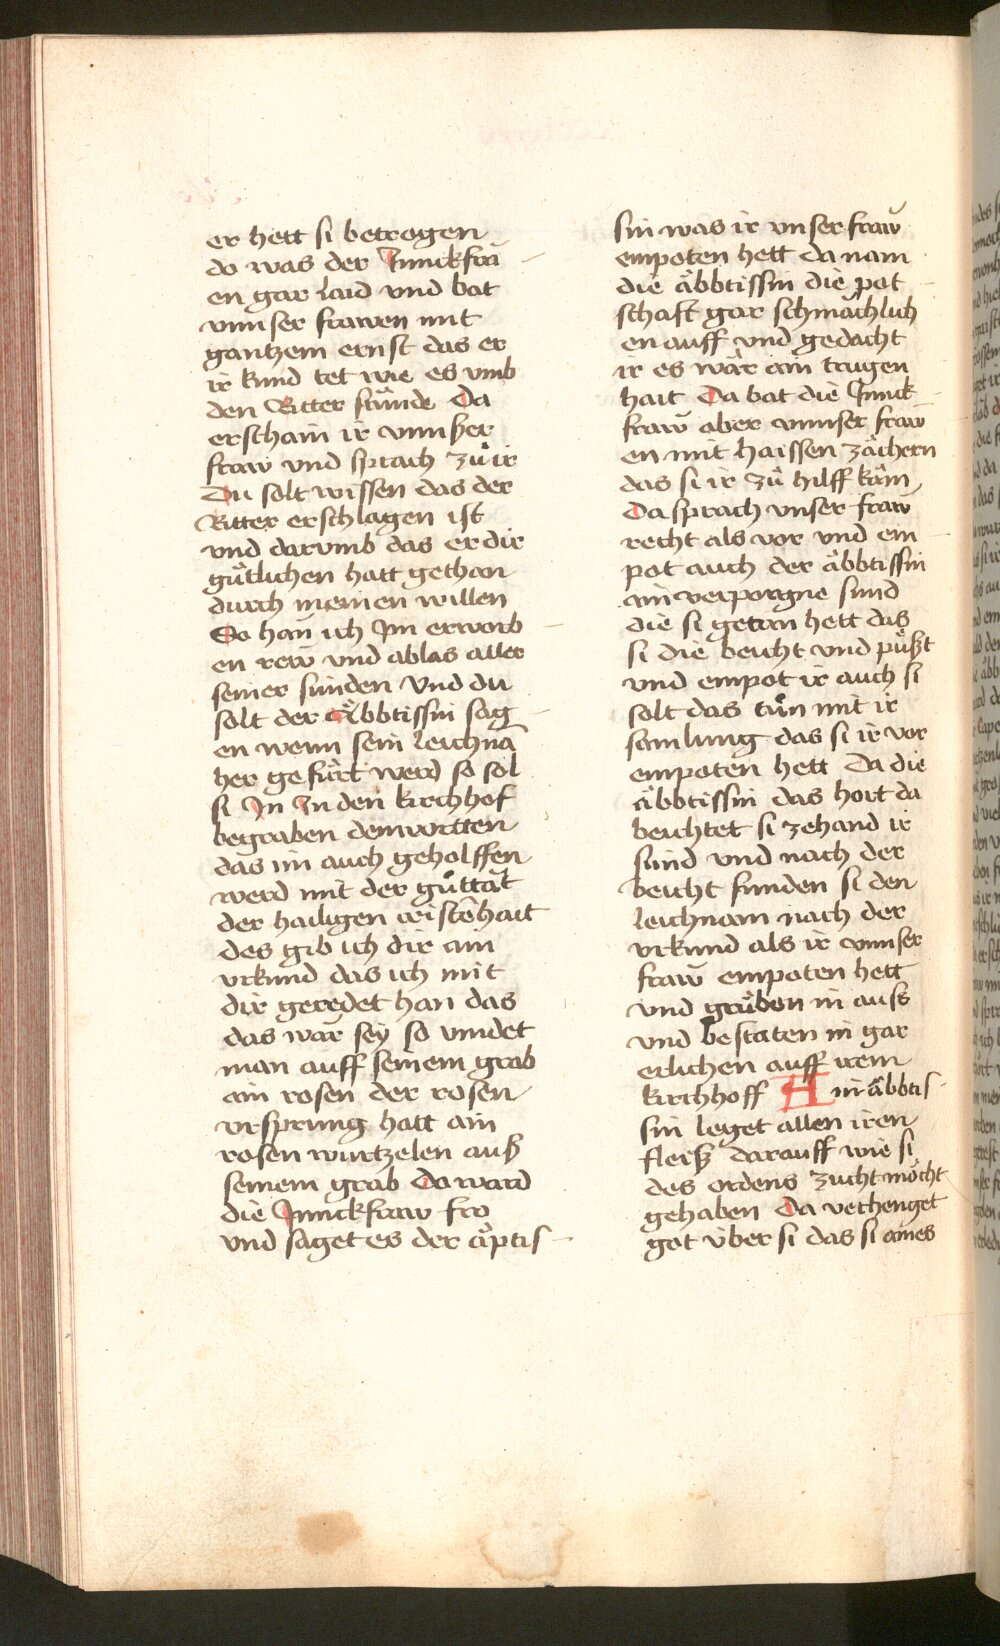 er hett si betrogen
do was der Junckfra
en gar laid vnd bat
vnnser frawen mit
gantzem ernst das er
ir kund tet wie es vmb
den Ritter stünde Da
erschain ir vnnßer
fraw vnd sprach zů ir
Du solt wissen das der
Ritter erschlagen ist
vnd darvmb das er dir
gütlichen hatt gethan
durch meinen willen
So han ich Jm erworb
en rew vnd ablas aller
seiner sünden Vnd du
solt der Äbbtissin sag
en wenn sein leichnā
her gefürt werd so sol
si Jn Jn den kirchhof
begraben denwortten
das im auch geholffen
werd mit der gůttat
der hailigen cristēhait
des gib ich dir ain
vrkund das ich mit
dir geredet han das
das war sey so vindet
man auff seinem grab
ain rosen der rosen
vrsprung hatt ain
rosen wurtzelen auß
seinem grab Da ward
die Junckfraw fro
vnd saget es der äptis
sin was ir vnser fraw
empoten hett da nam
die äbbtissin die pot
schaft gar schmächlich
en auff vnd gedacht
ir es wär ain trugen
hait Da bat die Junck
fraw aber vnnser fraw
en mit haissen zächern
das si ir zů hilff käm
Da sprach vnser fraw
recht als vor vnd ein
pot auch der äbbtissin
ain verporgne sünd
die si getan hett das
si die beicht vnd püßt
vnd empot ir auch si
solt das tůn mit ir
samlung das si ir vor
empoten hett Da die
äbbtissin das hort da
beichtet si zehand ir
sünd vnd nach der
beicht funden si den
leichnam nach der
vrkund als ir vnnser
fraw empoten hett
vnd grůben in auss
vnd bestaten in gar
erlichen auff irem
kirchhoff Ain äbbtis
sin leget allen iren
fleiß darauff wie si
des ordens zucht möcht
gehaben Da verhenget
got über si das si aines